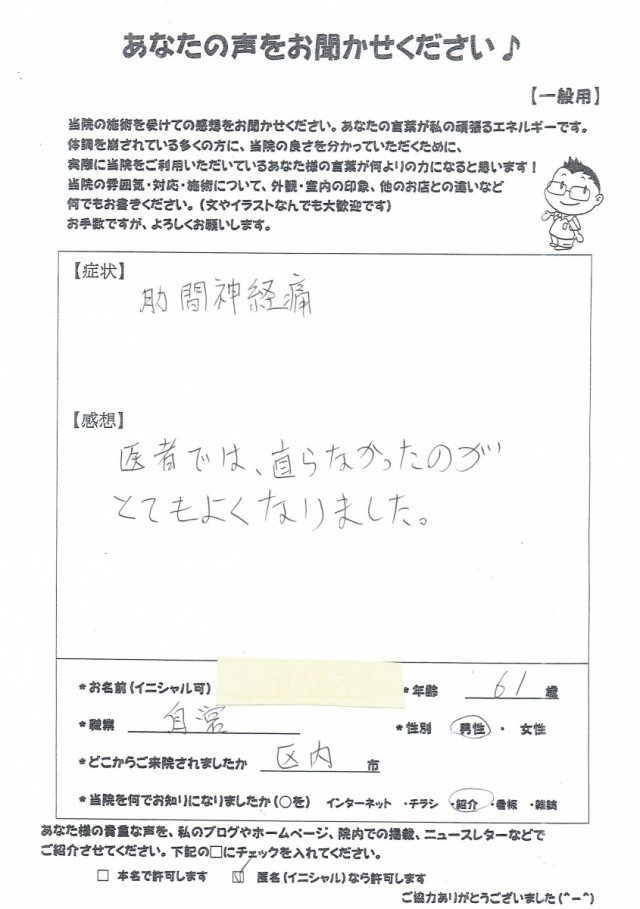 あなたの声をお聞かせください♪
【一般用】
当院の施術を受けての感想をお聞かせください。あなたの言葉が私の頑張るエネルギーです。
体調を崩されている多くの方に、当院の良さを分かっていただくために、
実際に当院をご利用いただいているあなた様の言葉が何よりの力になると思います！
当院の雰囲気・対応・施術について、外観・室内の印象、他のお店との違いなど
何でもお書きください。（文やイラストなんでも大歓迎です）
お手数ですが、よろしくお願いします。
【症状】
肋間神経痛
【感想】
医者では、直らなかったのが
とてもよくなりました。
*お名前（イニシャル可） *年齢 61 歳
*職業 自営 *性別 男性 ・ 女性
*どこからご来院されましたか 区内 市
*当院を何でお知りになりましたか（○を） インターネット ・チラシ ・紹介 ・看板 ・雑誌
あなた様の貴重な声を、私のブログやホームページ、院内での掲載、ニュースレターなどで
ご紹介させてください。下記の□にチェックを入れてください。
□ 本名で許可します ☑ 匿名（イニシャル）なら許可します
ご協力ありがとうございました（^－^）